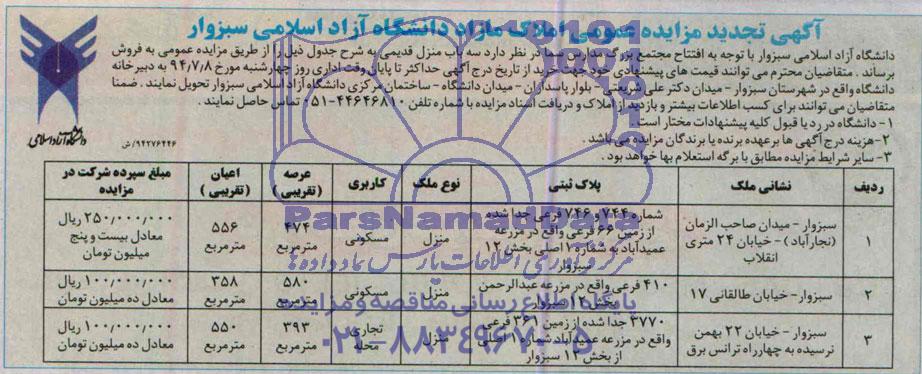 آگهی تجدید مزایده عمومی املاک مازاد دانشگاه آزاد اسلامی سبزوار
دانشگاه آزاد اسلامی سبزوار با توجه به افتتاح مجتمع بزرگ مدارس سما در نظر دارد سه باب منزل قدیمی به شرح جدول ذیل را از طریق مزایده عمومی به فروش
برساند . متقاضیان محترم می توانند قیمت های پیشنهادی خود جهت خرید از تاریخ درج آگهی حداکثر تا پایان وقت اداری روز چهارشنبه مورخ ۹۴/۷/۸ به دبیرخانه
دانشگاه واقع در شهرستان سبزوار - میدان دکتر علی شریعتی - بلوار پاسداران - میدان دانشگاه - ساختمان مرکزی دانشگاه آزاد اسلامی سبزوار تحویل نمایند . ضمنا
متقاضیان می توانند برای کسب اطلاعات بیشتر و بازدید از املاک و دریافت اسناد مزایده با شماره تلفن ۴۴۶۴۶۸۱۰-۰۵۱ تماس حاصل نمایند .
۱- دانشگاه در رد یا قبول کلیه پیشنهادات مختار است .
۲- هزینه درج آگهی ها بر عهده برنده یا برندگان مزایده می باشد .
۳- سایر شرایط مزایده مطابق با برگه استعلام بها خواهد بود .
دانشگاه آزاد اسلامی
۹۴۲۷۶۴۴۶/ش
ردیف | نشانی ملک | پلاک ثبتی | نوع ملک | کاربری | عرصه (تقریبی) | اعیان (تقریبی) | مبلغ سپرده شرکت در مزایده
۱ | سبزوار - میدان صاحب الزمان (نجارآباد) - خیابان ۲۴ متری انقلاب | شماره ۷۴۴ و ۷۴۶ فرعی جدا شده از زمین ۶۶ فرعی واقع در مزرعه عمیدآباد به شماره ۱ اصلی بخش ۱۲ سبزوار | منزل | مسکونی | ۴۷۴ مترمربع | ۵۵۶ مترمربع | ۲۵۰/۰۰۰/۰۰۰ ریال معادل بیست و پنج میلیون تومان
۲ | سبزوار - خیابان طالقانی ۱۷ | ۴۱۰ فرعی واقع در مزرعه عبدالرحمن بخش ۱۲ سبزوار | منزل | مسکونی | ۵۸۰ مترمربع | ۳۵۸ مترمربع | ۱۰۰/۰۰۰/۰۰۰ ریال معادل ده میلیون تومان
۳ | سبزوار - خیابان ۲۲ بهمن نرسیده به چهارراه ترانس برق | ۳۷۷۰ جدا شده از زمین ۳۶۱ فرعی واقع در مزرعه عمیدآباد شماره ۱ اصلی از بخش ۱۲ سبزوار | منزل | تجاری محله | ۳۹۳ مترمربع | ۵۵۰ مترمربع | ۱۰۰/۰۰۰/۰۰۰ ریال معادل ده میلیون تومان
ParsNamadData
مرکز فرآوری اطلاعات پارس نماد داده ها
پایگاه اطلاع رسانی مناقصه و مزایده